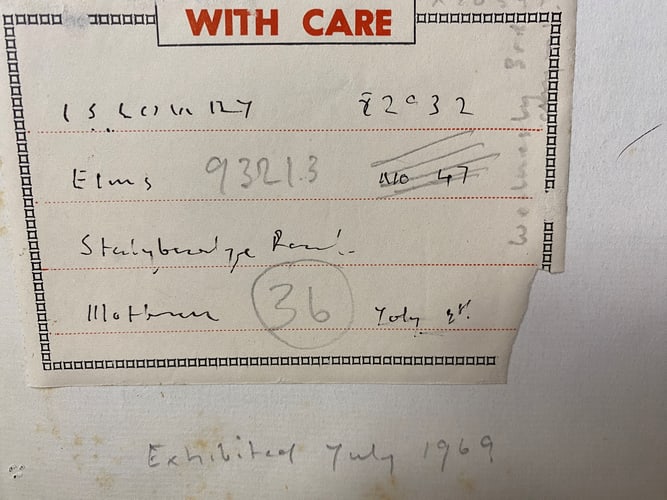 WITH CARE
L S LOWRY
Elms 93213 No 47
Stalybridge Road
Mottram 36 July
Exhibited July 1969